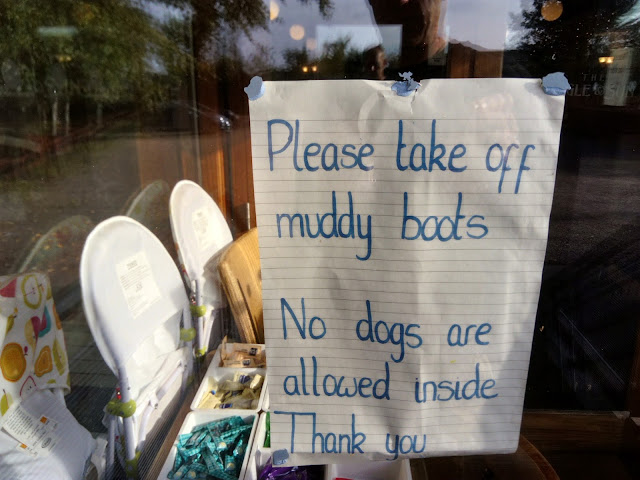 Please take off
muddy boots
No dogs are
allowed inside
Thank you